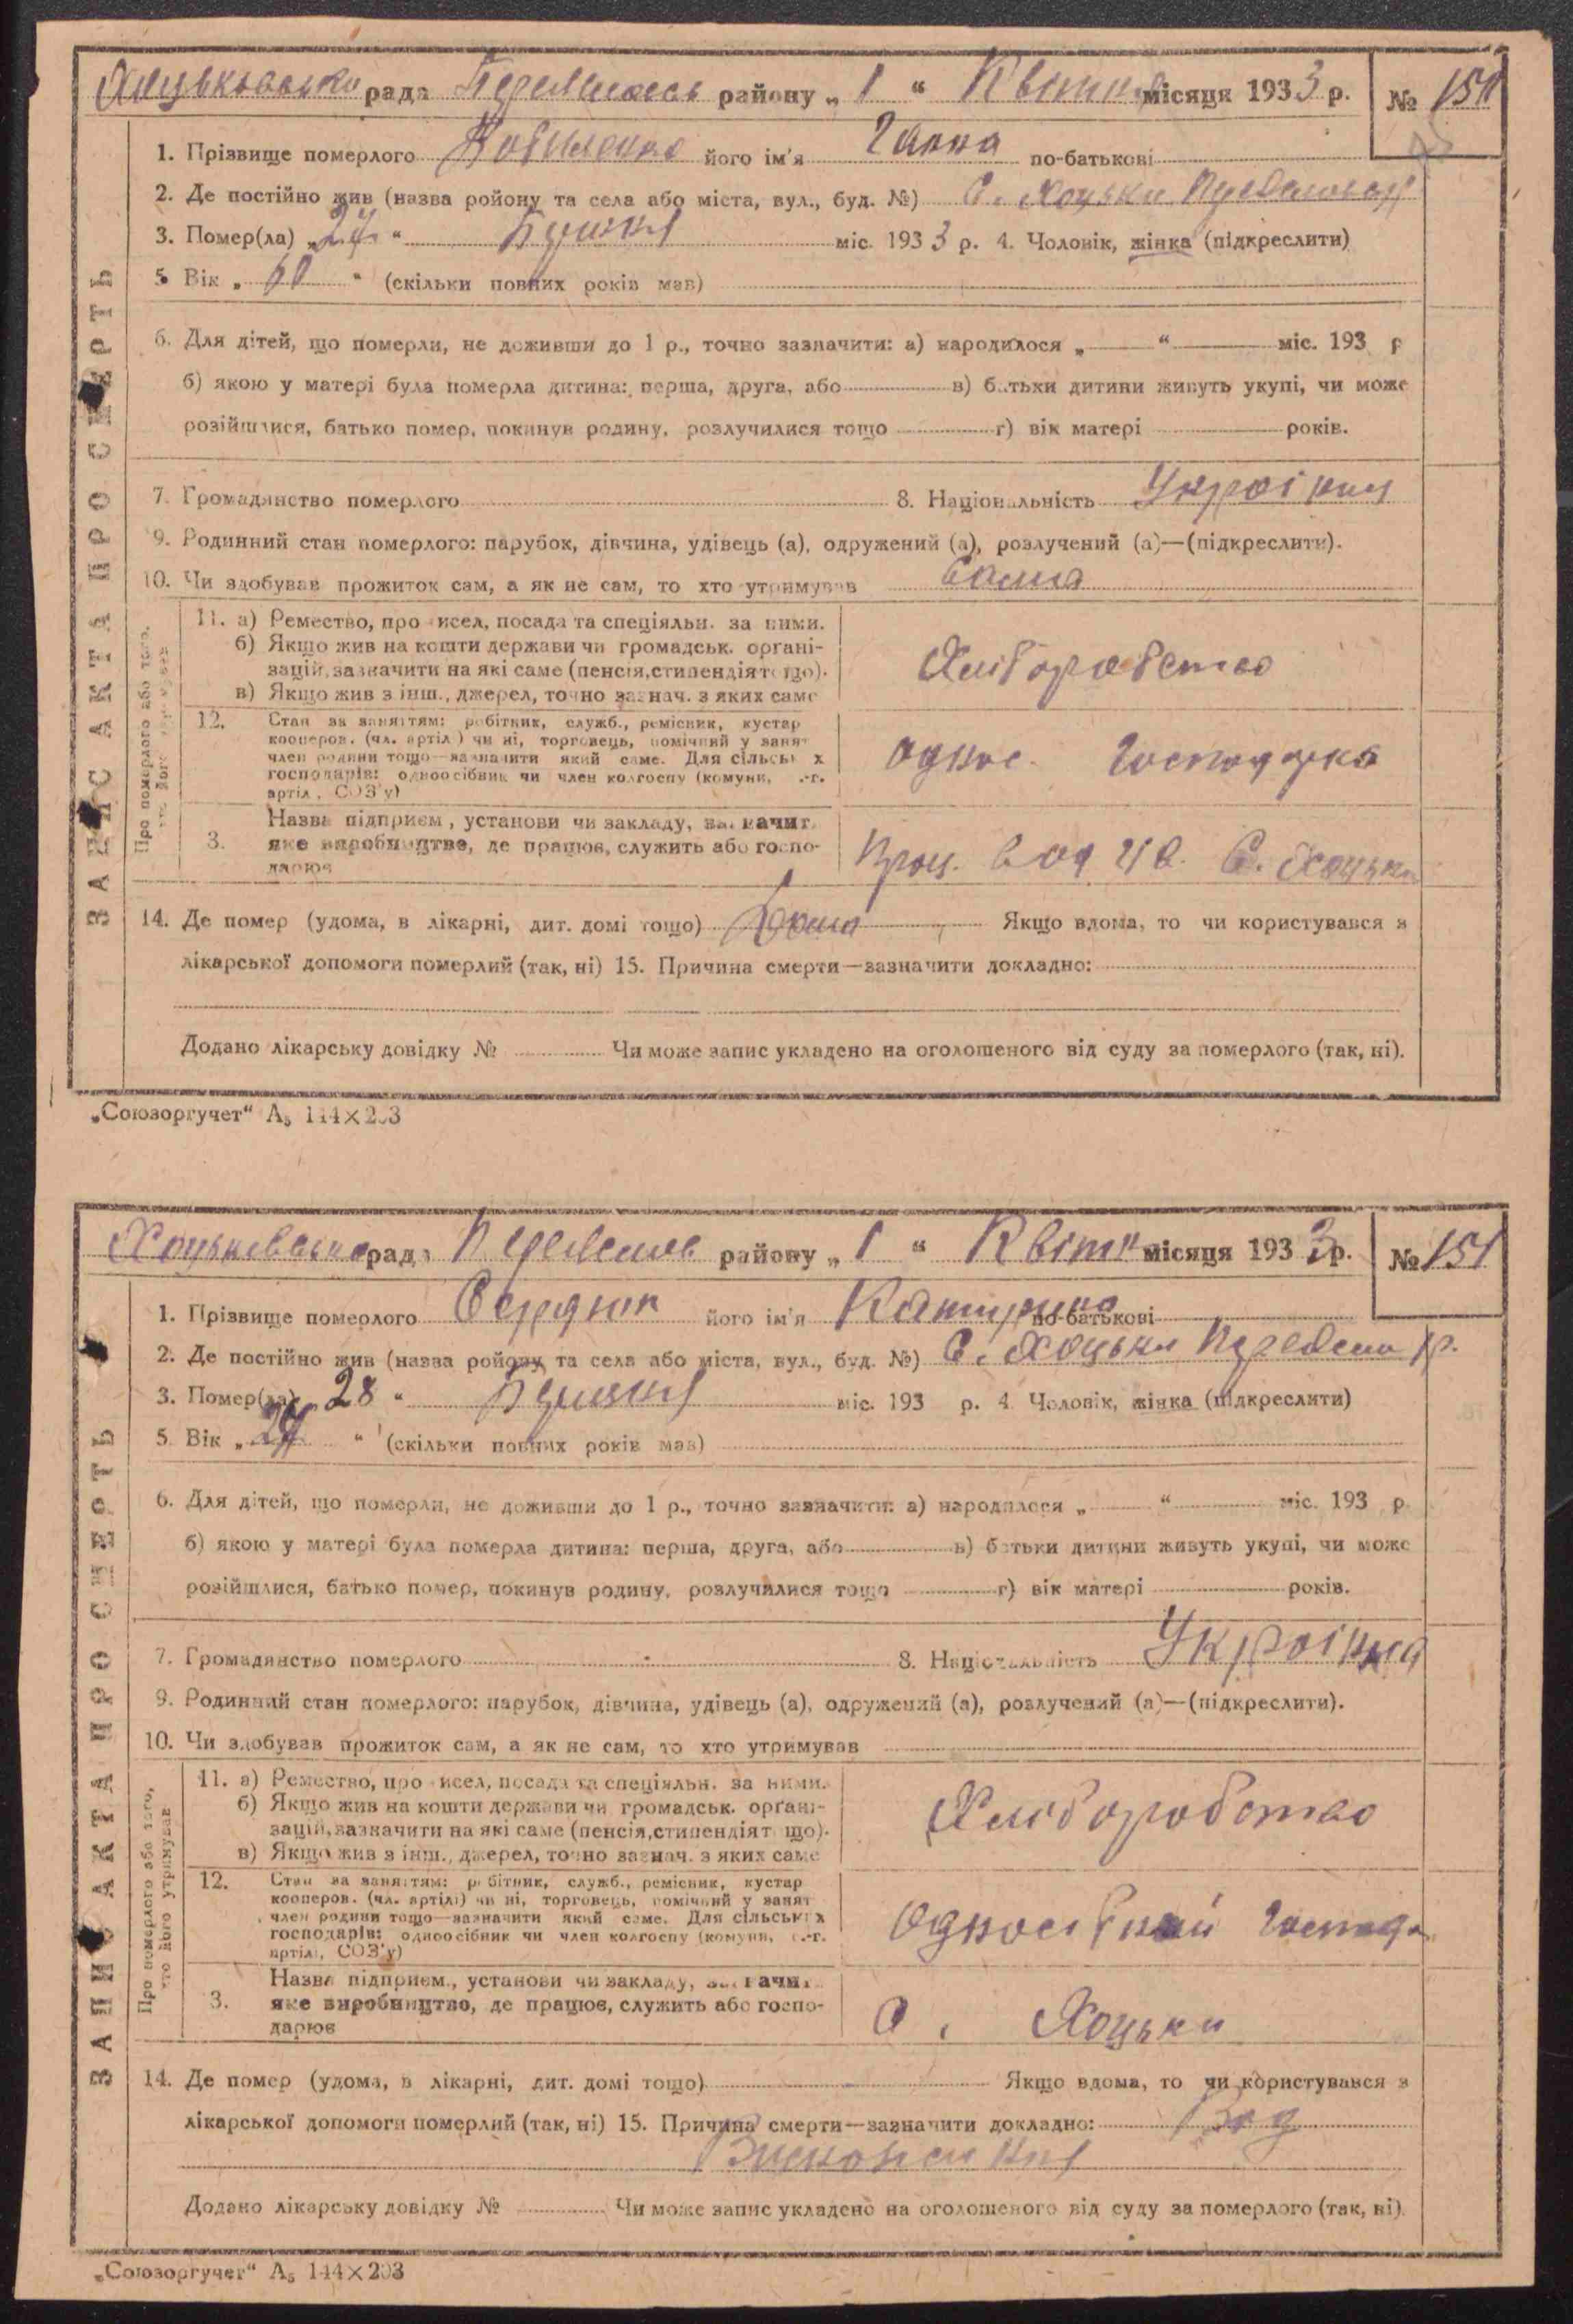 Хоцьковська рада Переяславськ району „ 1 “ Квітня місяця 1933 р. № 150
1. Прізвище померлого його ім'я Ганна по-батькові
2. Де постійно жив (назва ройону та села або міста, вул., буд. №) С. Хоцьки
3. Помер(ла) „ 27 “ міс. 1933 р. 4. Чоловік, жінка (підкреслити)
5 Вік „ “ (скільки повних років мав)
6. Для дітей, що померли, не доживши до 1 р., точно зазначити: а) народилося „ “ міс. 193 р
б) якою у матері була померла дитина: перша, друга, або в) батьки дитини живуть укупі, чи може
розійшлися, батько помер, покинув родину, розлучилися тощо г) вік матері років.
7. Громадянство померлого 8. Національність Українка
9. Родинний стан померлого: парубок, дівчина, удівець (а), одружений (а), розлучений (а)—(підкреслити).
10. Чи здобував прожиток сам, а як не сам, то хто утримував Сама
ЗАПИС АКТА ПРО СМЕРТЬ
Про померлого або того, хто його утримував
11. а) Ремество, про исел, посада та спеціяльн. за ними.
б) Якщо жив на кошти держави чи громадськ. органі-
зацій, зазначити на які саме (пенсія, стипендія тощо).
в) Якщо жив з інш., джерел, точно зазнач. з яких саме
Хліборобство
12. Стан за заняттям: робітник, служб., ремісник, кустар
кооперов. (чл. артіл ) чи ні, торговець, помічний у занят
член родини тощо—зазначити який саме. Для сільськ х
господарів: одноосібник чи член колгоспу (комуни, с.-г.
артіл , СОЗ'у)
однос. господарка
3. Назва підприєм , установи чи закладу, зазначит
яке виробництво, де працює, служить або госпо-
дарює
С. Хоцьки
14. Де помер (удома, в лікарні, дит. домі тощо) Дома Якщо вдома, то чи користувався з
лікарської допомоги померлий (так, ні) 15. Причина смерти—зазначити докладно:
Додано лікарську довідку № Чи може запис укладено на оголошеного від суду за померлого (так, ні).
„Союзоргучет“ А₅ 144×203
Хоцьківська рада Переяслов району „ 1 “ Квітн місяця 1933 р. № 151
1. Прізвище померлого Сердюк його ім'я Катирина по-батькові
2. Де постійно жив (назва ройону та села або міста, вул., буд. №) С. Хоцьки Переясл р.
3. Помер(ла) 28 “ міс. 193 р. 4 Чоловік, жінка (підкреслити)
5. Вік „ “ (скільки повних років мав)
6. Для дітей, що померли, не доживши до 1 р., точно зазначити: а) народилося „ “ міс. 193 р.
б) якою у матері була померла дитина: перша, друга, або в) батьки дитини живуть укупі, чи може
розійшлися, батько помер, покинув родину, розлучилися тощо г) вік матері років.
7. Громадянство померлого 8. Національність Українка
9. Родинний стан померлого: парубок, дівчина, удівець (а), одружений (а), розлучений (а)—(підкреслити).
10. Чи здобував прожиток сам, а як не сам, то хто утримував
ЗАПИС АКТА ПРО СМЕРТЬ
Про померлого або того, хто його утримував
11. а) Ремество, про исел, посада та спеціяльн. за ними.
б) Якщо жив на кошти держави чи громадськ. органі-
зацій, зазначити на які саме (пенсія, стипендія т що).
в) Якщо жив з інш., джерел, точно зазнач. з яких саме
Хліборобство
12. Стан за заняттям: робітник, служб., ремісник, кустар
кооперов. (чл. артілі) чи ні, торговець, помічний у занят
член родини тощо—зазначити який саме. Для сільських
господарів: одноосібник чи член колгоспу (комуни, с.-г.
артілі, СОЗ'у)
3. Назва підприєм., установи чи закладу, зазначит
яке виробництво, де працює, служить або госпо-
дарює
С. Хоцьки
14. Де помер (удома, в лікарні, дит. домі тощо) Якщо вдома, то чи користувався з
лікарської допомоги померлий (так, ні) 15. Причина смерти—зазначити докладно: Від
Виснаження
Додано лікарську довідку № Чи може запис укладено на оголошеного від суду за померлого (так, ні).
„Союзоргучет“ А₅ 144×203